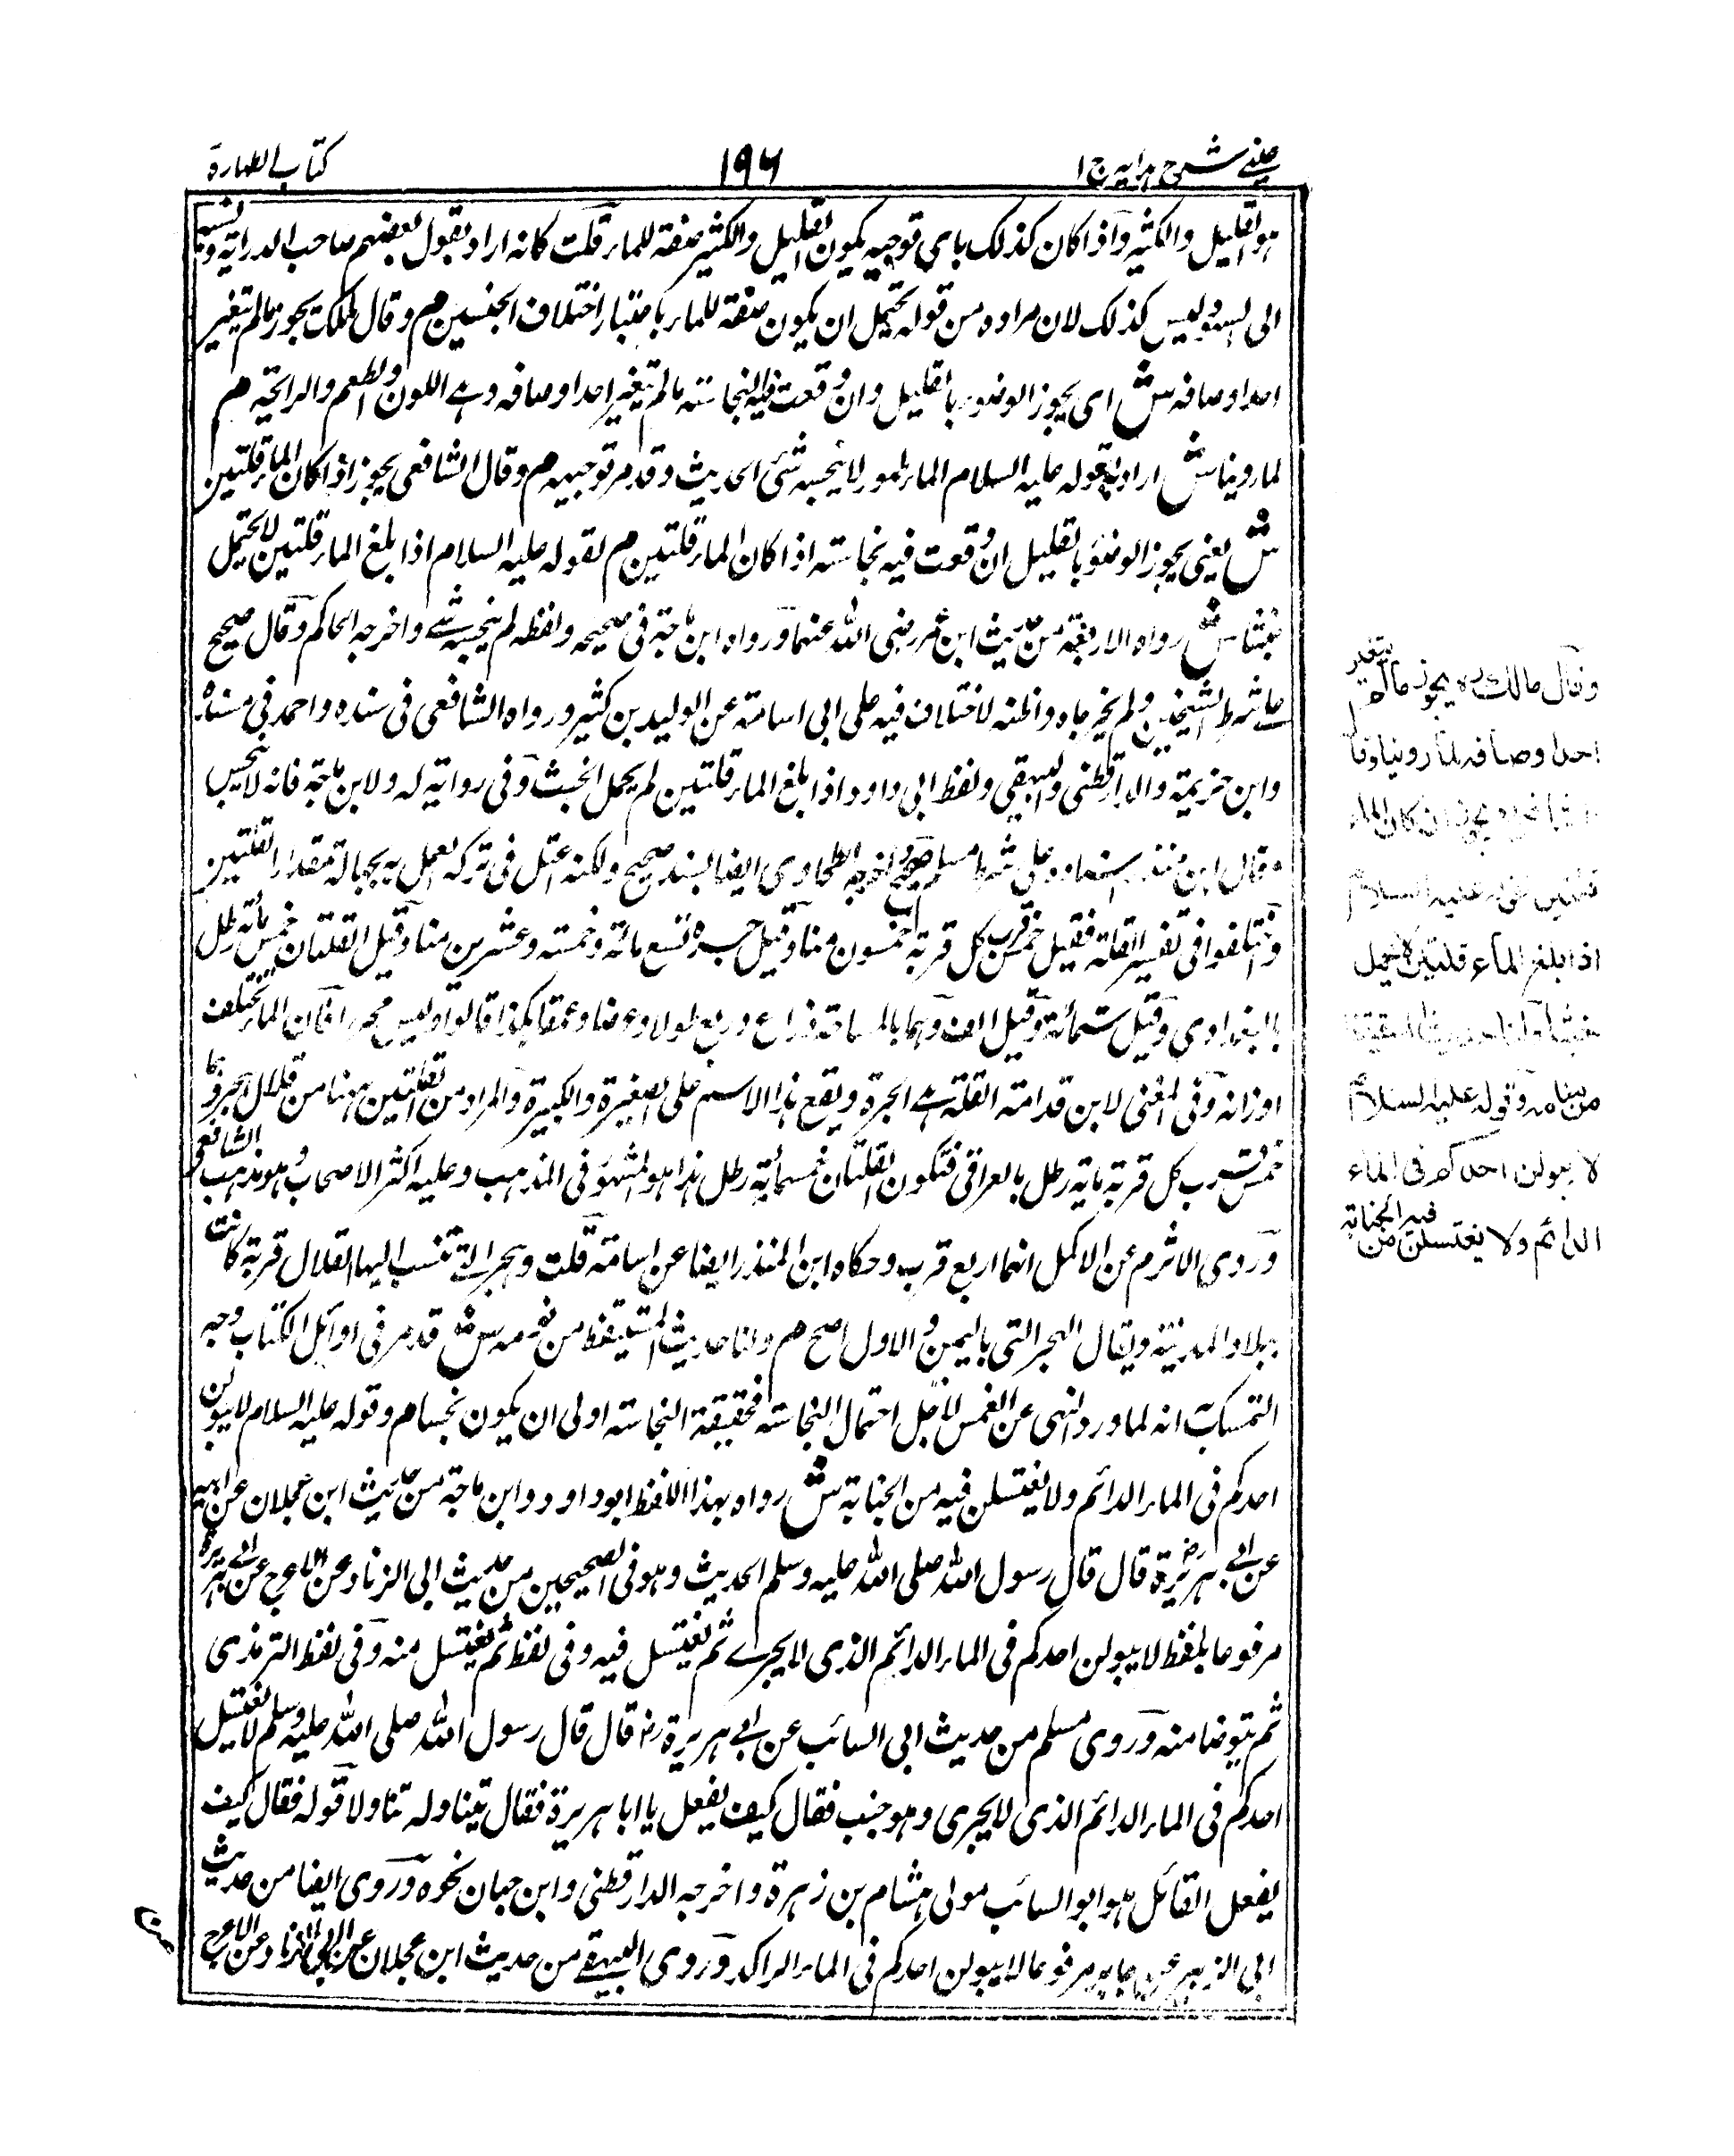 عينى شرح هدايه ج ١
١٩٦
كتاب الطهارة
هو القليل والكثير واذا كان كذلك باى توجيه يكون القليل والكثير صفة للماء قلت كانه اراد بقول بعضهم صاحب الدراية
الى السهو وليس كذلك لان مراده من قوله يحتمل ان يكون صفة للماء باعتبار اختلاف الجنسين م وقال مالك يجوز مالم يتغير
احد اوصافه ش اى يجوز الوضوء بالقليل وان وقعت فيه النجاسة مالم يتغير احد اوصافه وهى اللون والطعم والرائحة م
لما روينا ش اراد به قوله عليه السلام الماء طهور لا ينجسه شئ الحديث وقد مر توجيهه م وقال الشافعى يجوز اذا كان الماء قلتين
ش يعنى يجوز الوضوء بالقليل ان وقعت فيه نجاسة اذا كان الماء قلتين م لقوله عليه السلام اذا بلغ الماء قلتين لا يحتمل
خبثا ش رواه الاربعة من حديث ابن عمر رضى الله عنهما ورواه ابن ماجة فى صحيحه ولفظه لم ينجسه شئ واخرجه الحاكم وقال صحيح
على شرط الشيخين ولم يخرجاه واظنه لاختلاف فيه على ابى اسامة عن الوليد بن كثير ورواه الشافعى فى مسنده واحمد فى مسنده
وابن خزيمة والدارقطنى والبيهقى ولفظ ابى داود اذا بلغ الماء قلتين لم يحمل الخبث وفى رواية له ولابن ماجة فانه لا ينجس
وقال ابن منده اسناده على شرط مسلم صحيح واخرجه الطحاوى ايضا بسند صحيح ولكنه اعتل فى تركه العمل به بجهالة مقدار القلتين
واختلفوا فى تفسير القلة فقيل خمس قرب كل قربة خمسون منا وقيل جرة تسع مائة وخمسة وعشرين منا وقيل القلتان خمس مائة رطل
بالبغدادى وقيل ستمائة وقيل الف وهما بالمساحة ذراع وربع طولا وعرضا وعمقا هكذا قالوا وليس محررا فان الماء تختلف
اوزانه وفى المغنى لابن قدامة القلة هى الجرة ويقع هذا الاسم على الصغيرة والكبيرة والمراد من القلتين ههنا من قلال هجر وهما
خمس قرب كل قربة ماية رطل بالعراقى فتكون القلتان خمسمأية رطل هذا هو المشهور فى المذهب وعليه اكثر الاصحاب وهو مذهب الشافعى
وروى الاثرم عن الاكمل انهما اربع قرب وحكاه ابن المنذر ايضا عن اسامة قلت وهجر التى تنسب اليها القلال قرية كانت
ببلاد المدينة ويقال الهجر التى باليمن والاول اصح م ولنا حديث المستيقظ من نومه ش قد مر فى اوائل الكتاب وجه
التمسك به انه لما ورد النهى عن الغمس لاجل احتمال النجاسة فحقيقة النجاسة اولى ان يكون نجسا م وقوله عليه السلام لا يبولن
احدكم فى الماء الدائم ولا يغتسلن فيه من الجنابة ش رواه بهذا اللفظ ابو داود وابن ماجة من حديث ابن عجلان عن ابيه
عن ابى هريرة رض قال قال رسول الله صلى الله عليه وسلم الحديث وهو فى الصحيحين من حديث ابى الزناد عن الاعرج عن ابى هريرة
مرفوعا بلفظ لا يبولن احدكم فى الماء الدائم الذى لا يجرى ثم يغتسل فيه وفى لفظ ثم يغتسل منه وفى لفظ الترمذى
ثم يتوضا منه وروى مسلم من حديث ابى السائب عن ابى هريرة رض قال قال رسول الله صلى الله عليه وسلم لا يغتسل
احدكم فى الماء الدائم الذى لا يجرى وهو جنب فقال كيف يفعل يا ابا هريرة فقال يتناوله تناولا قوله فقال كيف
يفعل القائل هو ابو السائب مولى هشام بن زهرة واخرجه الدارقطنى وابن حبان نحوه وروى ايضا من حديث
ابى الزبير عن جابر مرفوعا لا يبولن احدكم فى الماء الراكد وروى البيهقى من حديث ابن عجلان عن ابى الزناد عن الاعرج
وقال مالك ره يجوز مالم يتغير
احد اوصافه لما روينا وقال
الشافعى ره يجوز ان كان الماء
قلتين لقوله عليه السلام
اذا بلغ الماء قلتين لا يحمل
خبثا ولنا حديث المستيقظ
من منامه وقوله عليه السلام
لا يبولن احدكم فى الماء
الدائم ولا يغتسلن فيه من الجنابة